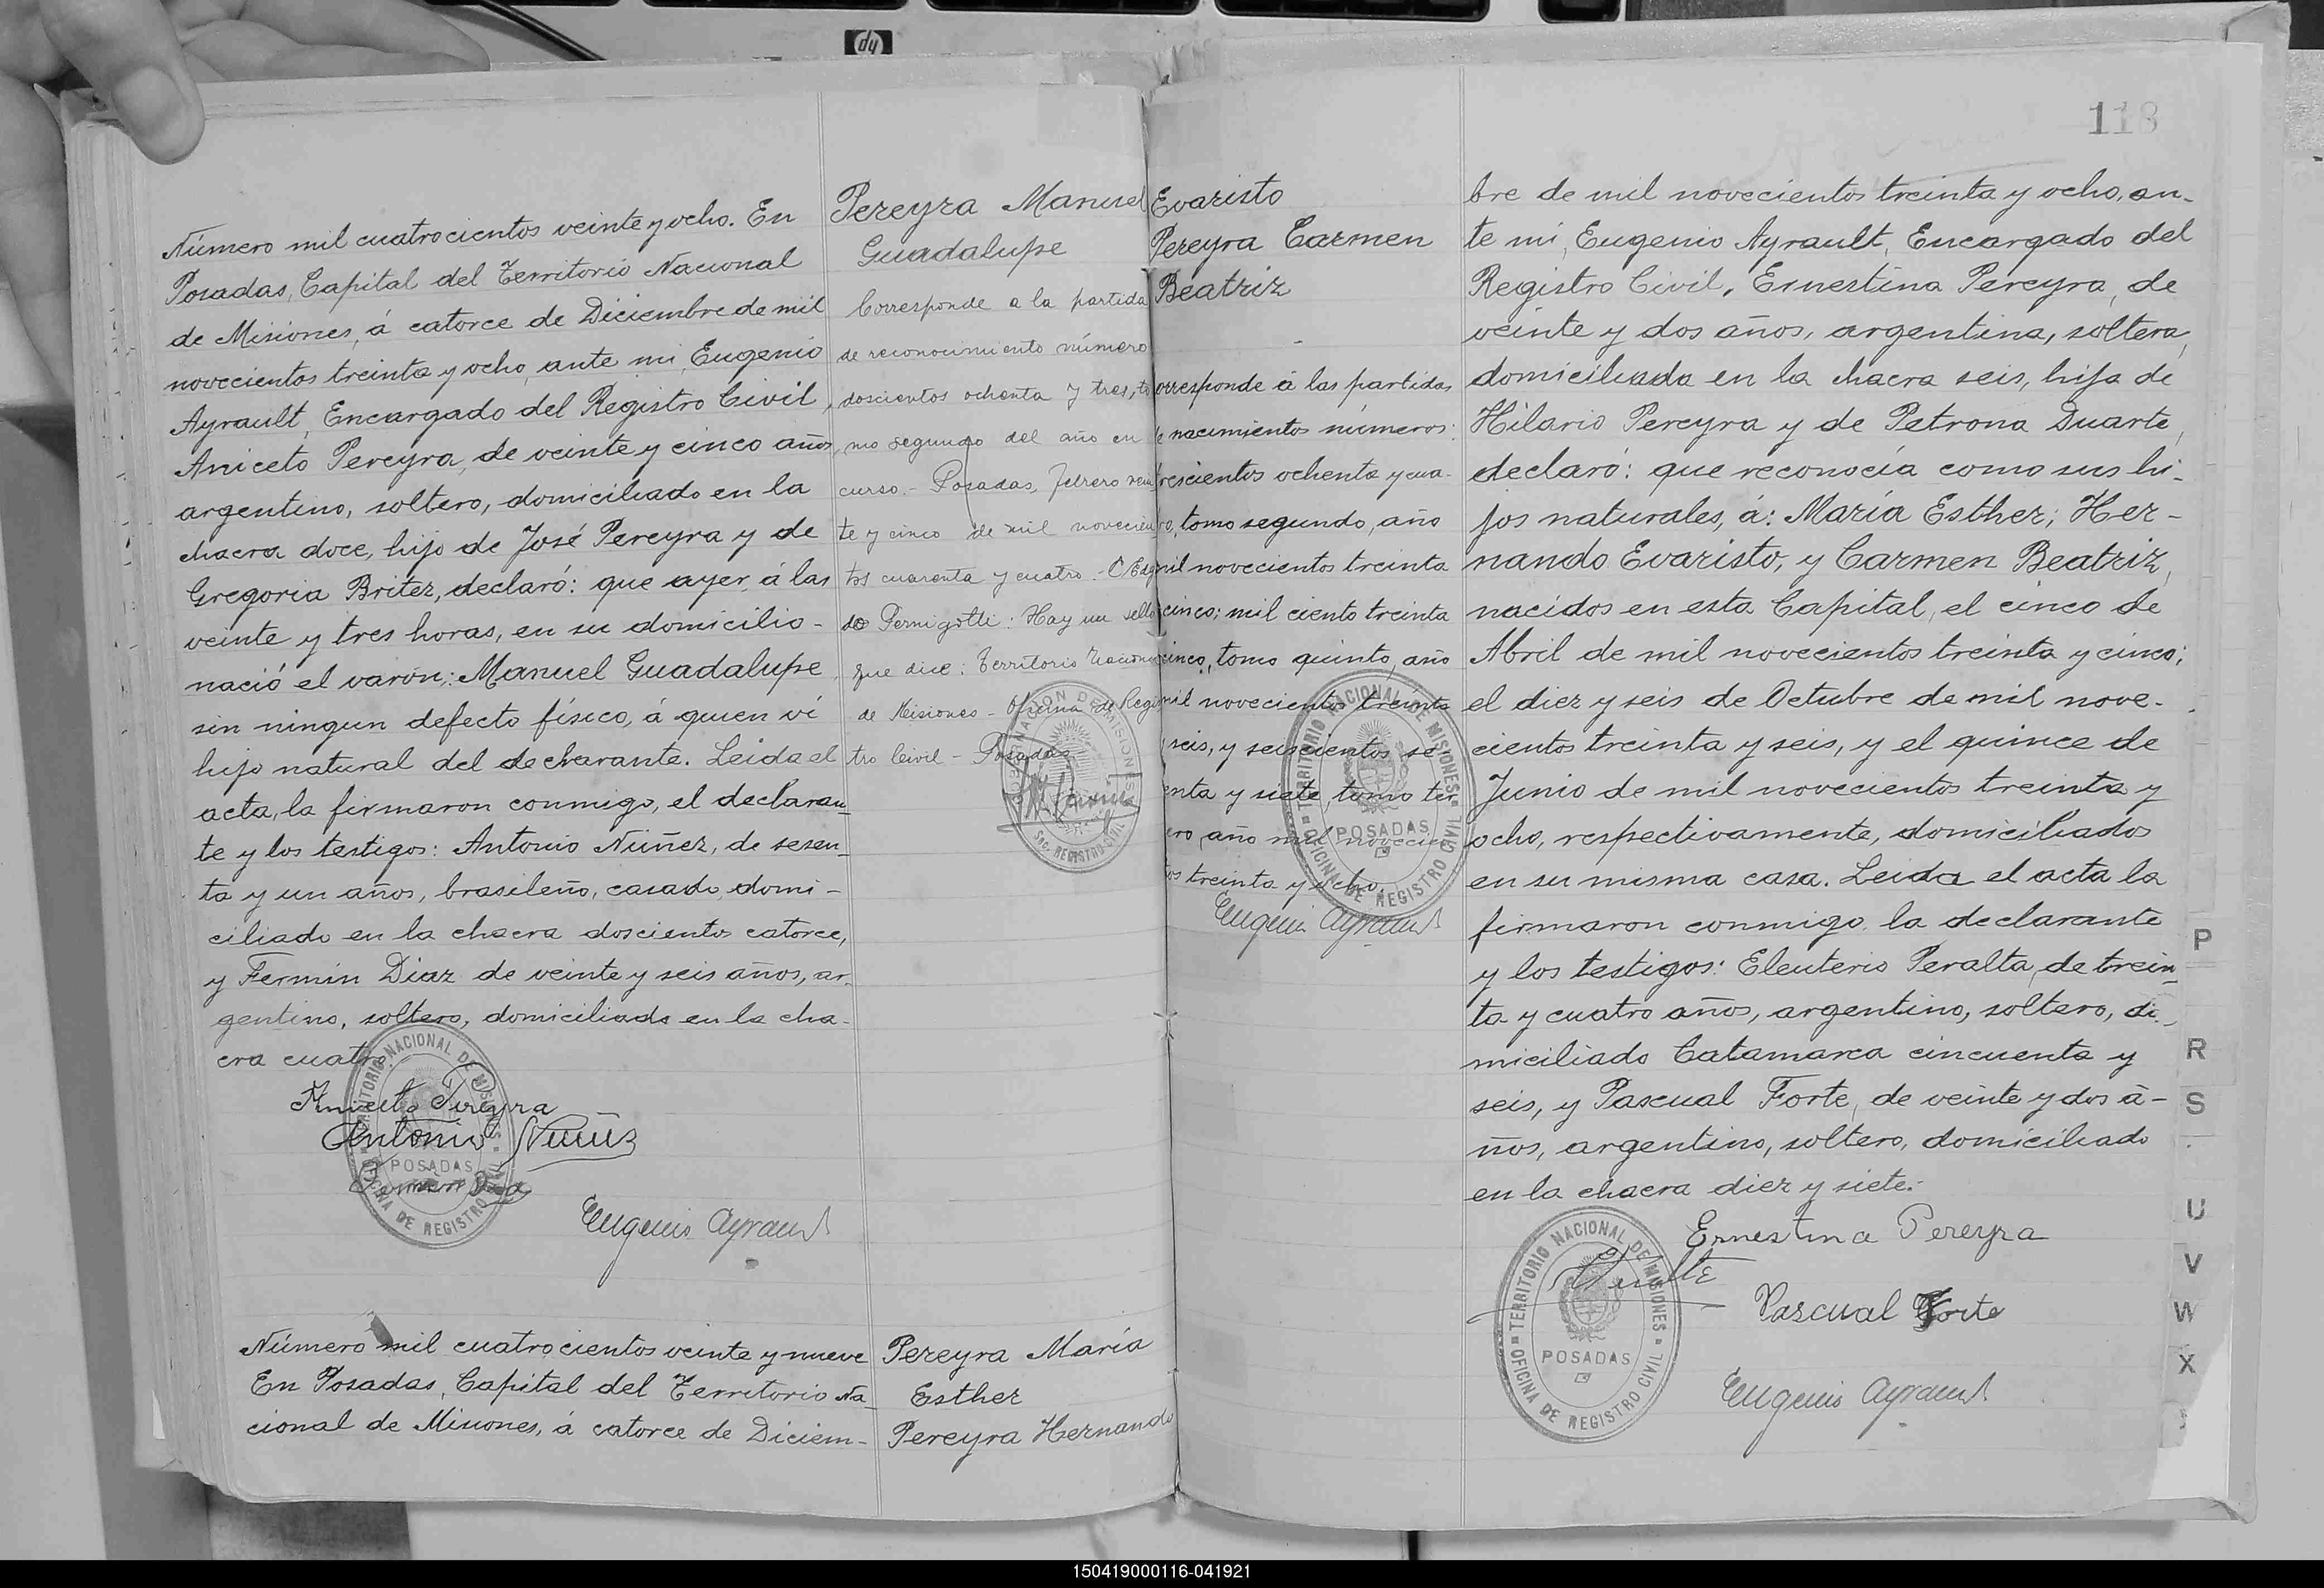 118
Número mil cuatrocientos veinte y ocho. En
Posadas, Capital del Territorio Nacional
de Misiones, á catorce de Diciembre de mil
novecientos treinta y ocho, ante mi, Eugenio
Ayrault, Encargado del Registro Civil,
Aniceto Pereyra, de veinte y cinco años,
argentino, soltero, domiciliado en la
chacra doce, hijo de José Pereyra y de
Gregoria Britez, declaró: que ayer, á las
veinte y tres horas, en su domicilio-
nació el varón: Manuel Guadalupe,
sin ningun defecto físico, á quien ví
hijo natural del declarante. Leida el
acta, la firmaron conmigo, el declaran_
te y los testigos: Antonio Nuñez, de sesen_
ta y un años, brasileño, casado, domi-
ciliado en la chacra doscientos catorce,
y Fermin Diaz de veinte y seis años, ar_
gentino, soltero, domiciliado en la cha-
cra cuatro.
Aniceto Pereyra
Antonio Nuñez
Fermin Diaz
Eugenio Ayrault
TERRITORIO NACIONAL DE MISIONES
POSADAS
OFICINA DE REGISTRO CIVIL
Pereyra Manuel
Guadalupe
Corresponde a la partida
de reconocimiento número
doscientos ochenta y tres, to
mo segundo del año en
curso.- Posadas, febrero vein
te y cinco de mil novecien
tos cuarenta y cuatro.-
do Pernigotti: Hay un sello
que dice: Territorio Nacional
de Misiones - Oficina de Regis
tro Civil - Posadas
GOBERNACION DE MISIONES
SEC. REGISTRO CIVIL
Número mil cuatrocientos veinte y nueve
En Posadas, Capital del Territorio Na_
cional de Misiones, á catorce de Diciem-
Pereyra María
Esther
Pereyra Hernando
Evaristo
Pereyra Carmen
Beatriz
orresponde á las partidas
de nacimientos números:
trescientos ochenta y cua-
ro, tomo segundo, año
mil novecientos treinta
cinco; mil ciento treinta
cinco, tomo quinto, año
mil novecientos treinta
y seis, y seiscientos se
enta y siete, tomo ter
ero, año mil novecien
tos treinta y ocho.
Eugenio Ayrault
TERRITORIO NACIONAL DE MISIONES
POSADAS
OFICINA DE REGISTRO CIVIL
bre de mil novecientos treinta y ocho, an-
te mi, Eugenio Ayrault, Encargado del
Registro Civil, Ernestina Pereyra, de
veinte y dos años, argentina, soltera,
domiciliada en la chacra seis, hija de
Hilario Pereyra y de Petrona Duarte,
declaró: que reconocía como sus hi-
jos naturales, á: María Esther; Her-
nando Evaristo, y Carmen Beatriz,
nacidos en esta Capital, el cinco de
Abril de mil novecientos treinta y cinco;
el diez y seis de Octubre de mil nove-
cientos treinta y seis, y el quince de
Junio de mil novecientos treinta y
ocho, respectivamente, domiciliados
en su misma casa. Leida el acta la
firmaron conmigo, la declarante
y los testigos: Eleuterio Peralta, de trein_
ta y cuatro años, argentino, soltero, do_
miciliado Catamarca cincuenta y
seis, y Pascual Forte, de veinte y dos a-
ños, argentino, soltero, domiciliado
en la chacra diez y siete.
Ernestina Pereyra
Pascual Forte
Eugenio Ayrault
TERRITORIO NACIONAL DE MISIONES
POSADAS
OFICINA DE REGISTRO CIVIL
P
R
S
U
V
W
X
hp
150419000116-041921